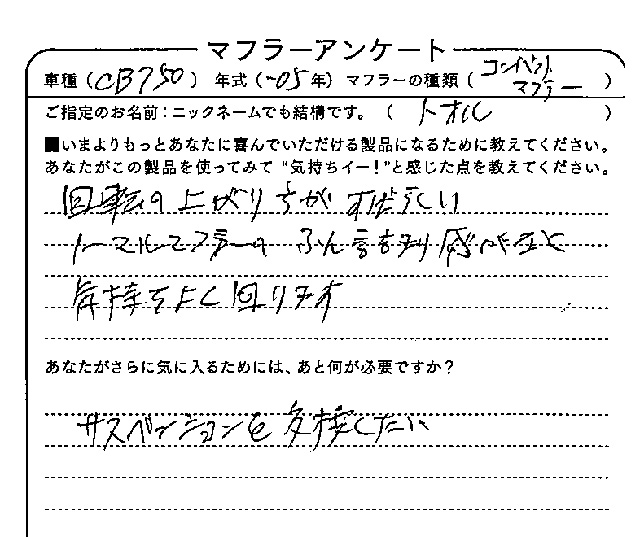 マフラーアンケート
車種（CB750） 年式（~05年） マフラーの種類（コンバットマフラー）
ご指定のお名前：ニックネームでも結構です。（トオル）
■いまよりもっとあなたに喜んでいただける製品になるために教えてください。
あなたがこの製品を使ってみて“気持ちイー！”と感じた点を教えてください。
回転の上がり方がすばらしい
ノーマルマフラーの ふん
気持ちよく回ります
あなたがさらに気に入るためには、あと何が必要ですか？
サスペンションを交換したい